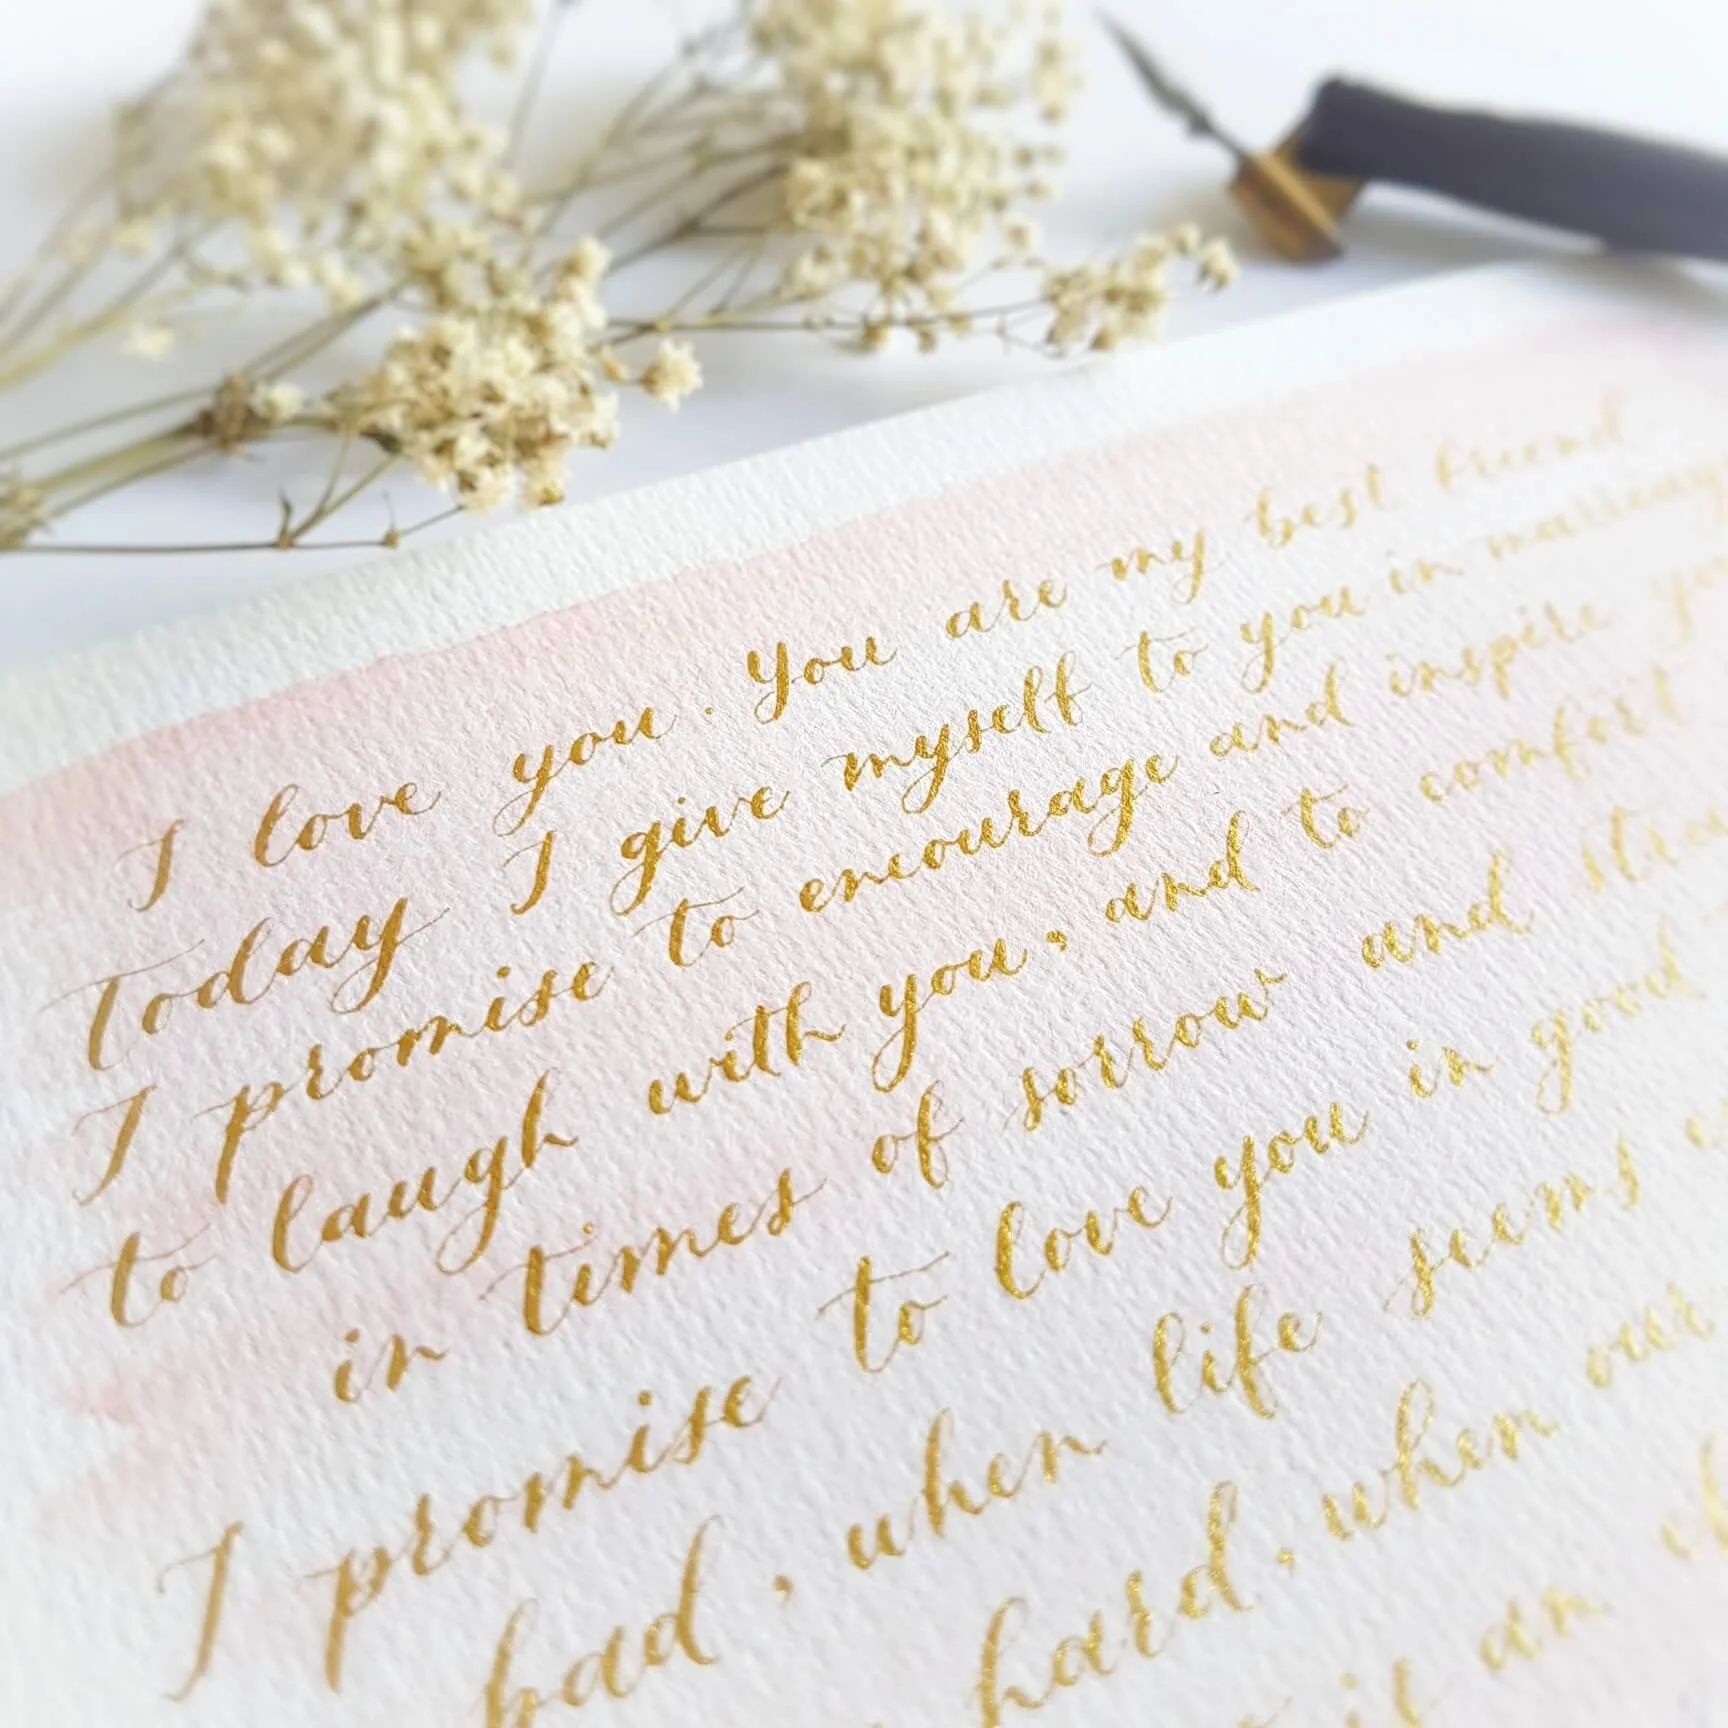 I love you. You are my best friend
Today I give myself to you in marriage
I promise to encourage and inspire you
to laugh with you, and to comfort
in times of sorrow and
I promise to love you in good
bad, when life seems
hard, when our
it an